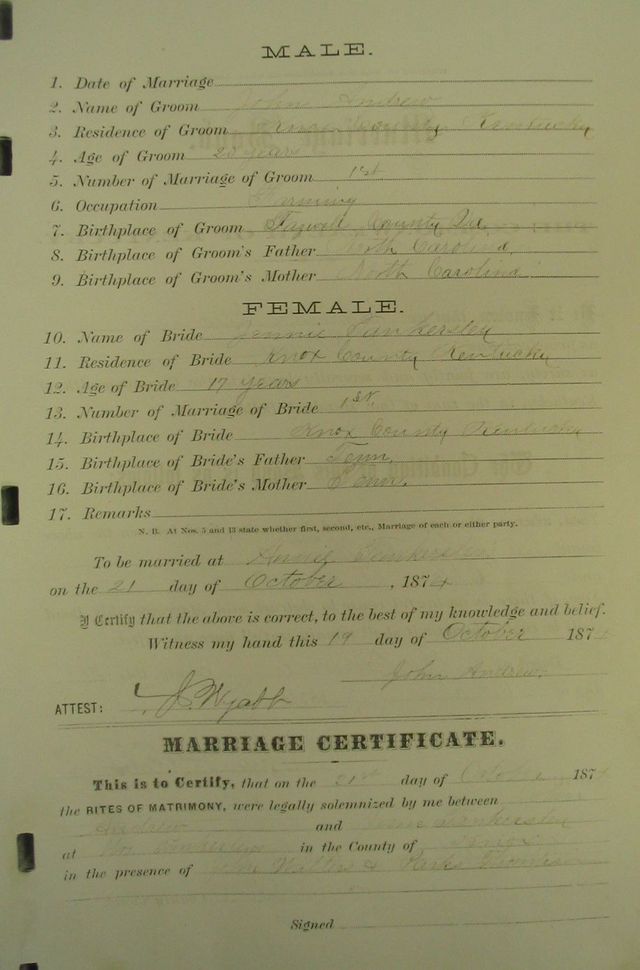 MALE.
1. Date of Marriage
2. Name of Groom John Andrew
3. Residence of Groom Knox County Kentucky
4. Age of Groom 23 years
5. Number of Marriage of Groom 1st
6. Occupation Farming
7. Birthplace of Groom County
8. Birthplace of Groom's Father North Carolina
9. Birthplace of Groom's Mother North Carolina
FEMALE.
10. Name of Bride Jennie Tankersley
11. Residence of Bride Knox County Kentucky
12. Age of Bride 17 years
13. Number of Marriage of Bride 1st.
14. Birthplace of Bride Knox County Kentucky
15. Birthplace of Bride's Father Tenn.
16. Birthplace of Bride's Mother Tenn.
17. Remarks
N. B. At Nos. 5 and 13 state whether first, second, etc., Marriage of each or either party.
To be married at Tankersley
on the 21 day of October, 1874
I Certify that the above is correct, to the best of my knowledge and belief.
Witness my hand this 19 day of October 1874
John Andrew.
ATTEST: J. Wyatt
MARRIAGE CERTIFICATE.
This is to Certify, that on the 21st day of October 1874
the RITES OF MATRIMONY, were legally solemnized by me between
Andrew and Tankersley
at in the County of Knox
in the presence of &
Signed